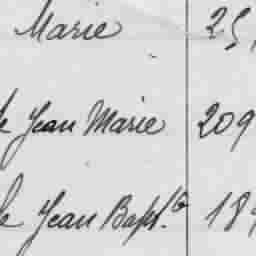 Marie 25,
Jean Marie 209
Jean Bapt.te 189